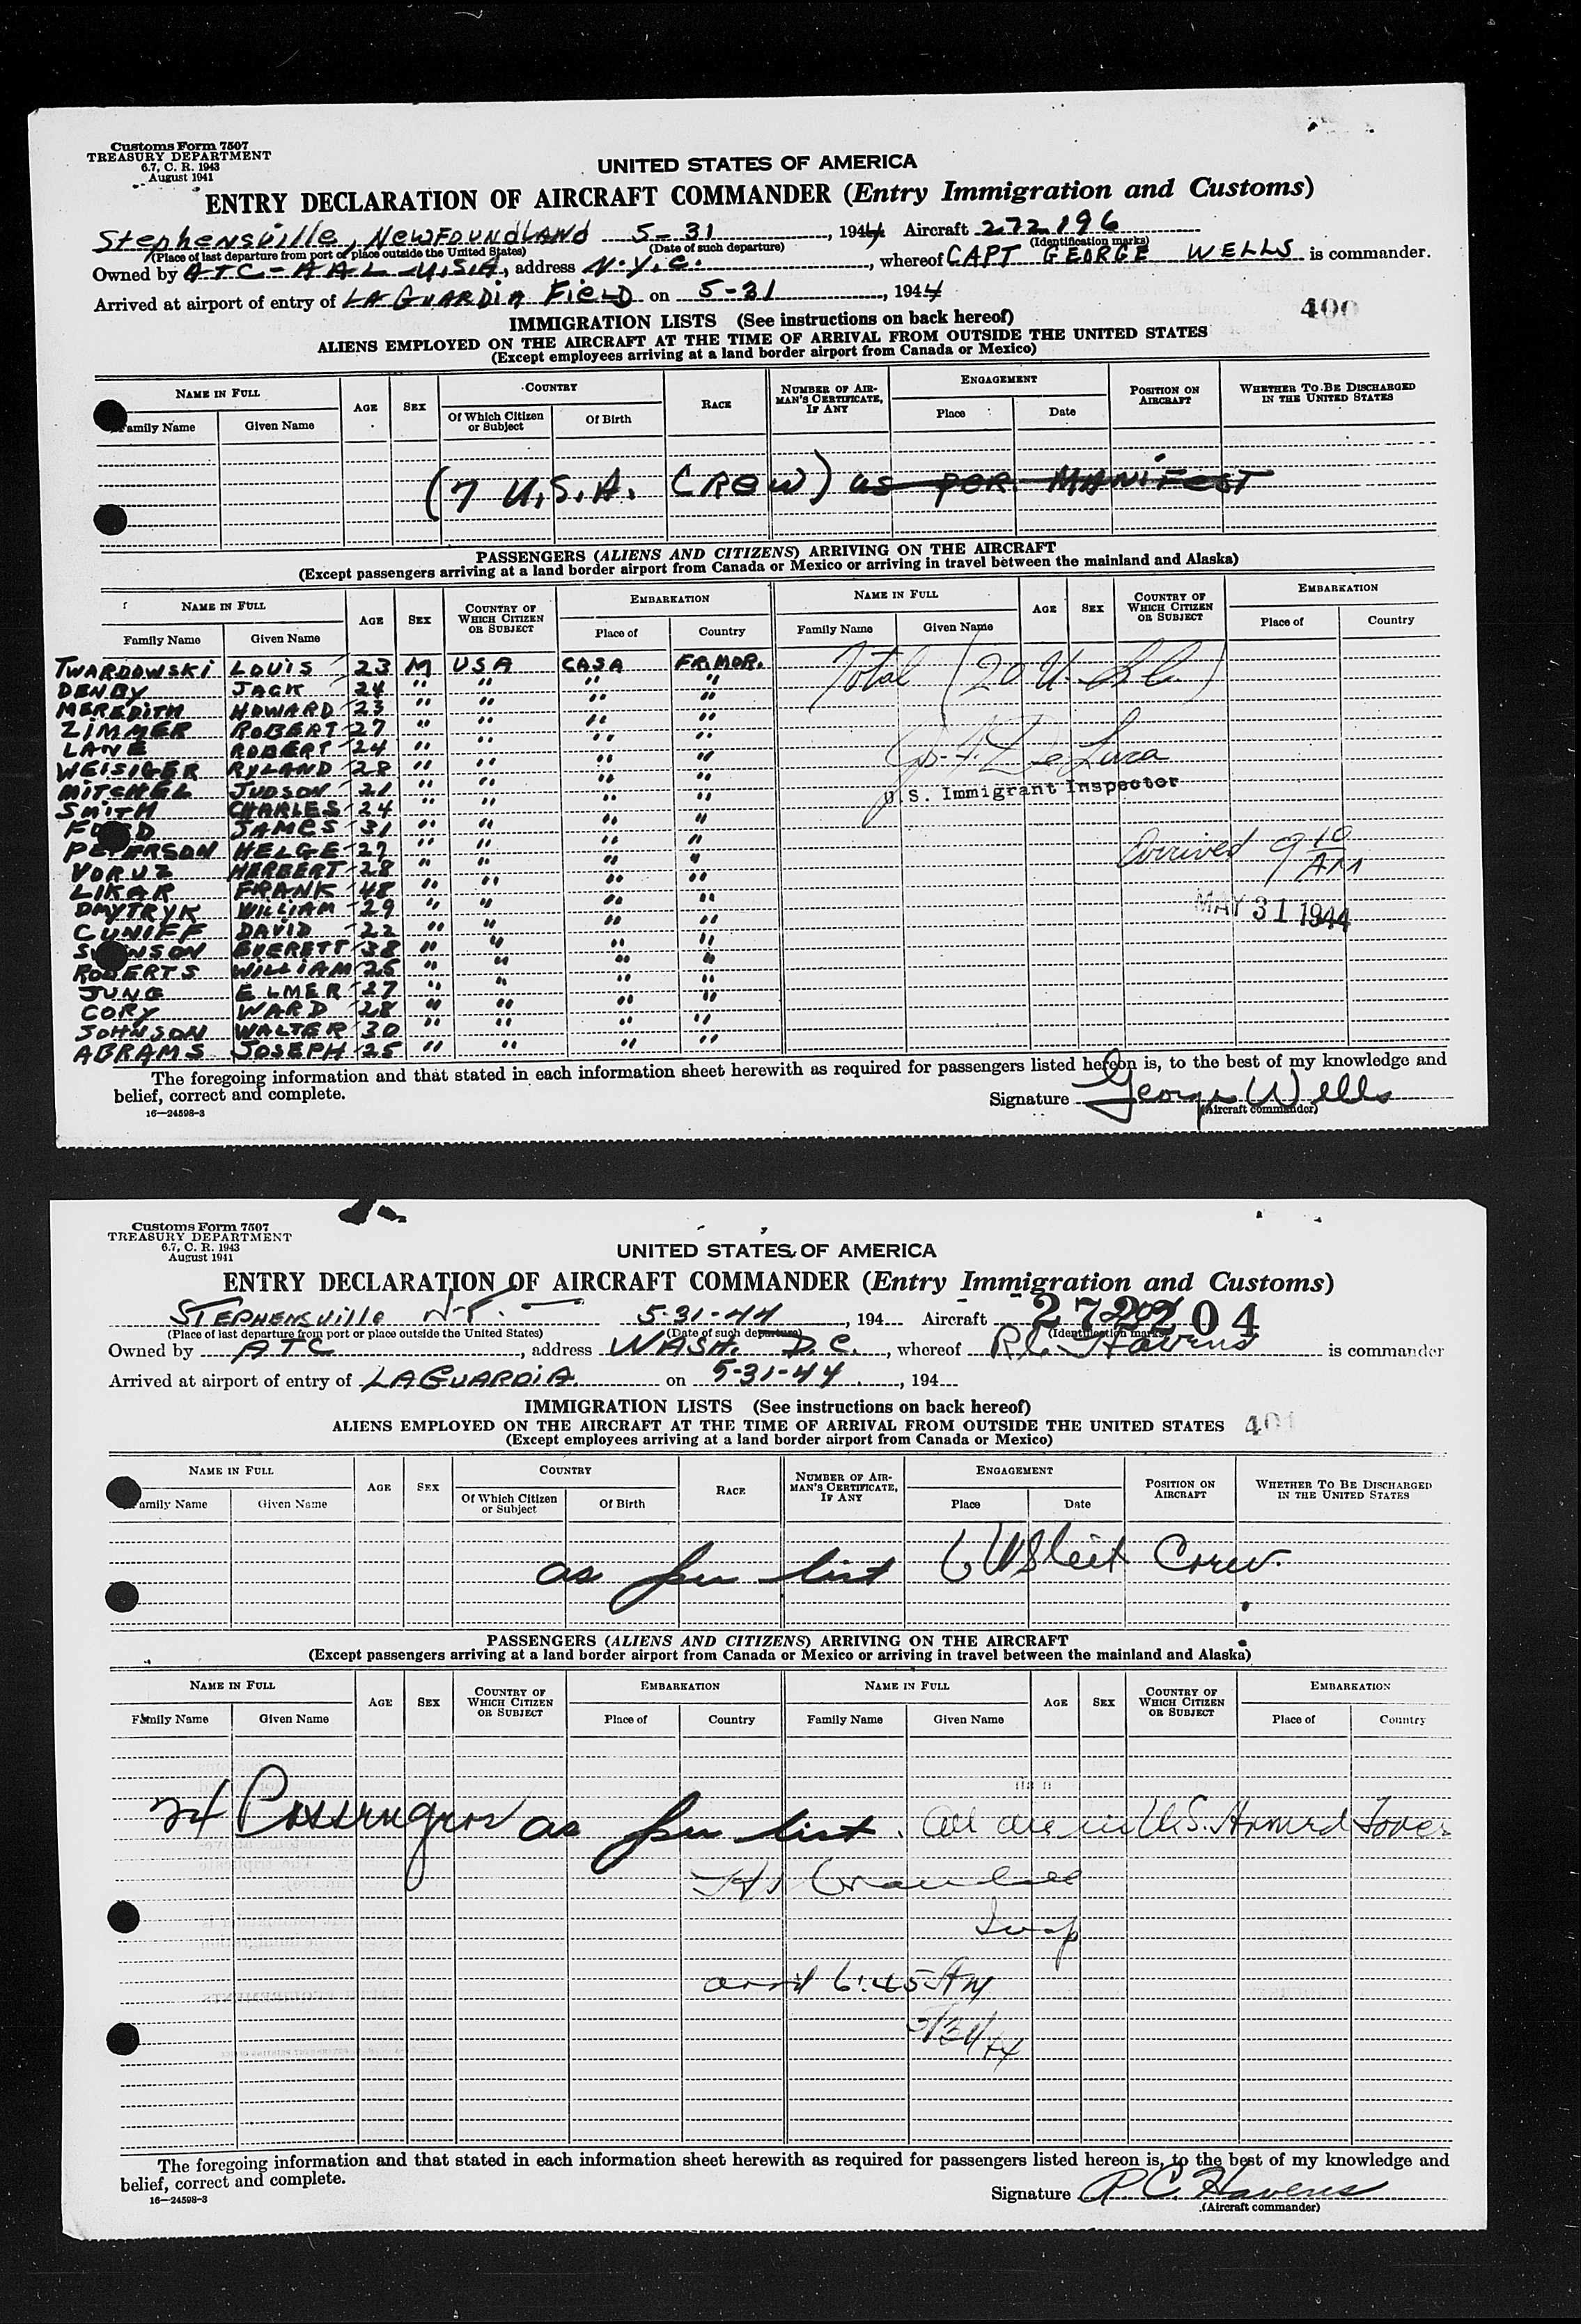 Customs Form 7507
TREASURY DEPARTMENT
6.7, C. R. 1943
August 1941
UNITED STATES OF AMERICA
ENTRY DECLARATION OF AIRCRAFT COMMANDER (Entry Immigration and Customs)
Stephensville, NEWFOUNDLAND 5-31, 1944 Aircraft 272196
(Place of last departure from port or place outside the United States) (Date of such departure) (Identification marks)
Owned by ATC-AAL-U.S.A, address N.Y.C., whereof CAPT GEORGE WELLS is commander.
Arrived at airport of entry of LA GUARDIA FIELD on 5-31, 1944
400
IMMIGRATION LISTS (See instructions on back hereof)
ALIENS EMPLOYED ON THE AIRCRAFT AT THE TIME OF ARRIVAL FROM OUTSIDE THE UNITED STATES
(Except employees arriving at a land border airport from Canada or Mexico)
NAME IN FULL AGE SEX COUNTRY RACE NUMBER OF AIRMAN'S CERTIFICATE, IF ANY ENGAGEMENT POSITION ON AIRCRAFT WHETHER TO BE DISCHARGED IN THE UNITED STATES
Family Name Given Name Of Which Citizen or Subject Of Birth Place Date
(7 U.S.A. CREW) as PER MANIFEST
PASSENGERS (ALIENS AND CITIZENS) ARRIVING ON THE AIRCRAFT
(Except passengers arriving at a land border airport from Canada or Mexico or arriving in travel between the mainland and Alaska)
NAME IN FULL AGE SEX COUNTRY OF WHICH CITIZEN OR SUBJECT EMBARKATION NAME IN FULL AGE SEX COUNTRY OF WHICH CITIZEN OR SUBJECT EMBARKATION
Family Name Given Name Place of Country Family Name Given Name Place of Country
TWARDOWSKI LOUIS 23 M USA CASA FR.MOR. Total (20 U.S.C.)
DENBY JACK 24 " " " "
MEREDITH HOWARD 23 " " " "
ZIMMER ROBERT 27 " " " "
LANE ROBERT 24 " " " "
WEISIGER RYLAND 28 " " " "
MITCHEL JUDSON 21 " " " "
U.S. Immigrant Inspector
SMITH CHARLES 24 " " " "
FORD JAMES 31 " " " "
PETERSON HELGE 27 " " " "
Arrived 9 10 AM
VORUZ HERBERT 28 " " " "
LIKAR FRANK 48 " " " "
DMYTRYK WILLIAM 29 " " " "
MAY 31 1944
CUNIFF DAVID 22 " " " "
SWANSON EVERETT 38 " " " "
ROBERTS WILLIAM 25 " " " "
JUNG ELMER 27 " " " "
CORY WARD 28 " " " "
JOHNSON WALTER 30 " " " "
ABRAMS JOSEPH 25 " " " "
The foregoing information and that stated in each information sheet herewith as required for passengers listed hereon is, to the best of my knowledge and
belief, correct and complete.
Signature George Wells
(Aircraft commander)
16—24598-3
Customs Form 7507
TREASURY DEPARTMENT
6.7, C. R. 1943
August 1941
UNITED STATES OF AMERICA
ENTRY DECLARATION OF AIRCRAFT COMMANDER (Entry Immigration and Customs)
STEPHENSVille N.F. 5-31-44, 194 Aircraft 272204
(Place of last departure from port or place outside the United States) (Date of such departure) (Identification marks)
Owned by ATC, address WASH. D.C., whereof R.C. Havens is commander
Arrived at airport of entry of LAGUARDIA on 5-31-44, 194
IMMIGRATION LISTS (See instructions on back hereof)
ALIENS EMPLOYED ON THE AIRCRAFT AT THE TIME OF ARRIVAL FROM OUTSIDE THE UNITED STATES 401
(Except employees arriving at a land border airport from Canada or Mexico)
NAME IN FULL AGE SEX COUNTRY RACE NUMBER OF AIRMAN'S CERTIFICATE, IF ANY ENGAGEMENT POSITION ON AIRCRAFT WHETHER TO BE DISCHARGED IN THE UNITED STATES
Family Name Given Name Of Which Citizen or Subject Of Birth Place Date
as per list 6 US Crew.
PASSENGERS (ALIENS AND CITIZENS) ARRIVING ON THE AIRCRAFT
(Except passengers arriving at a land border airport from Canada or Mexico or arriving in travel between the mainland and Alaska)
NAME IN FULL AGE SEX COUNTRY OF WHICH CITIZEN OR SUBJECT EMBARKATION NAME IN FULL AGE SEX COUNTRY OF WHICH CITIZEN OR SUBJECT EMBARKATION
Family Name Given Name Place of Country Family Name Given Name Place of Country
24 Passengers as per list. All are in U.S. Armed Forces
Insp
arrd 6:45 AM
5/31/44
The foregoing information and that stated in each information sheet herewith as required for passengers listed hereon is, to the best of my knowledge and
belief, correct and complete.
Signature R.C. Havens
(Aircraft commander)
16—24598-3